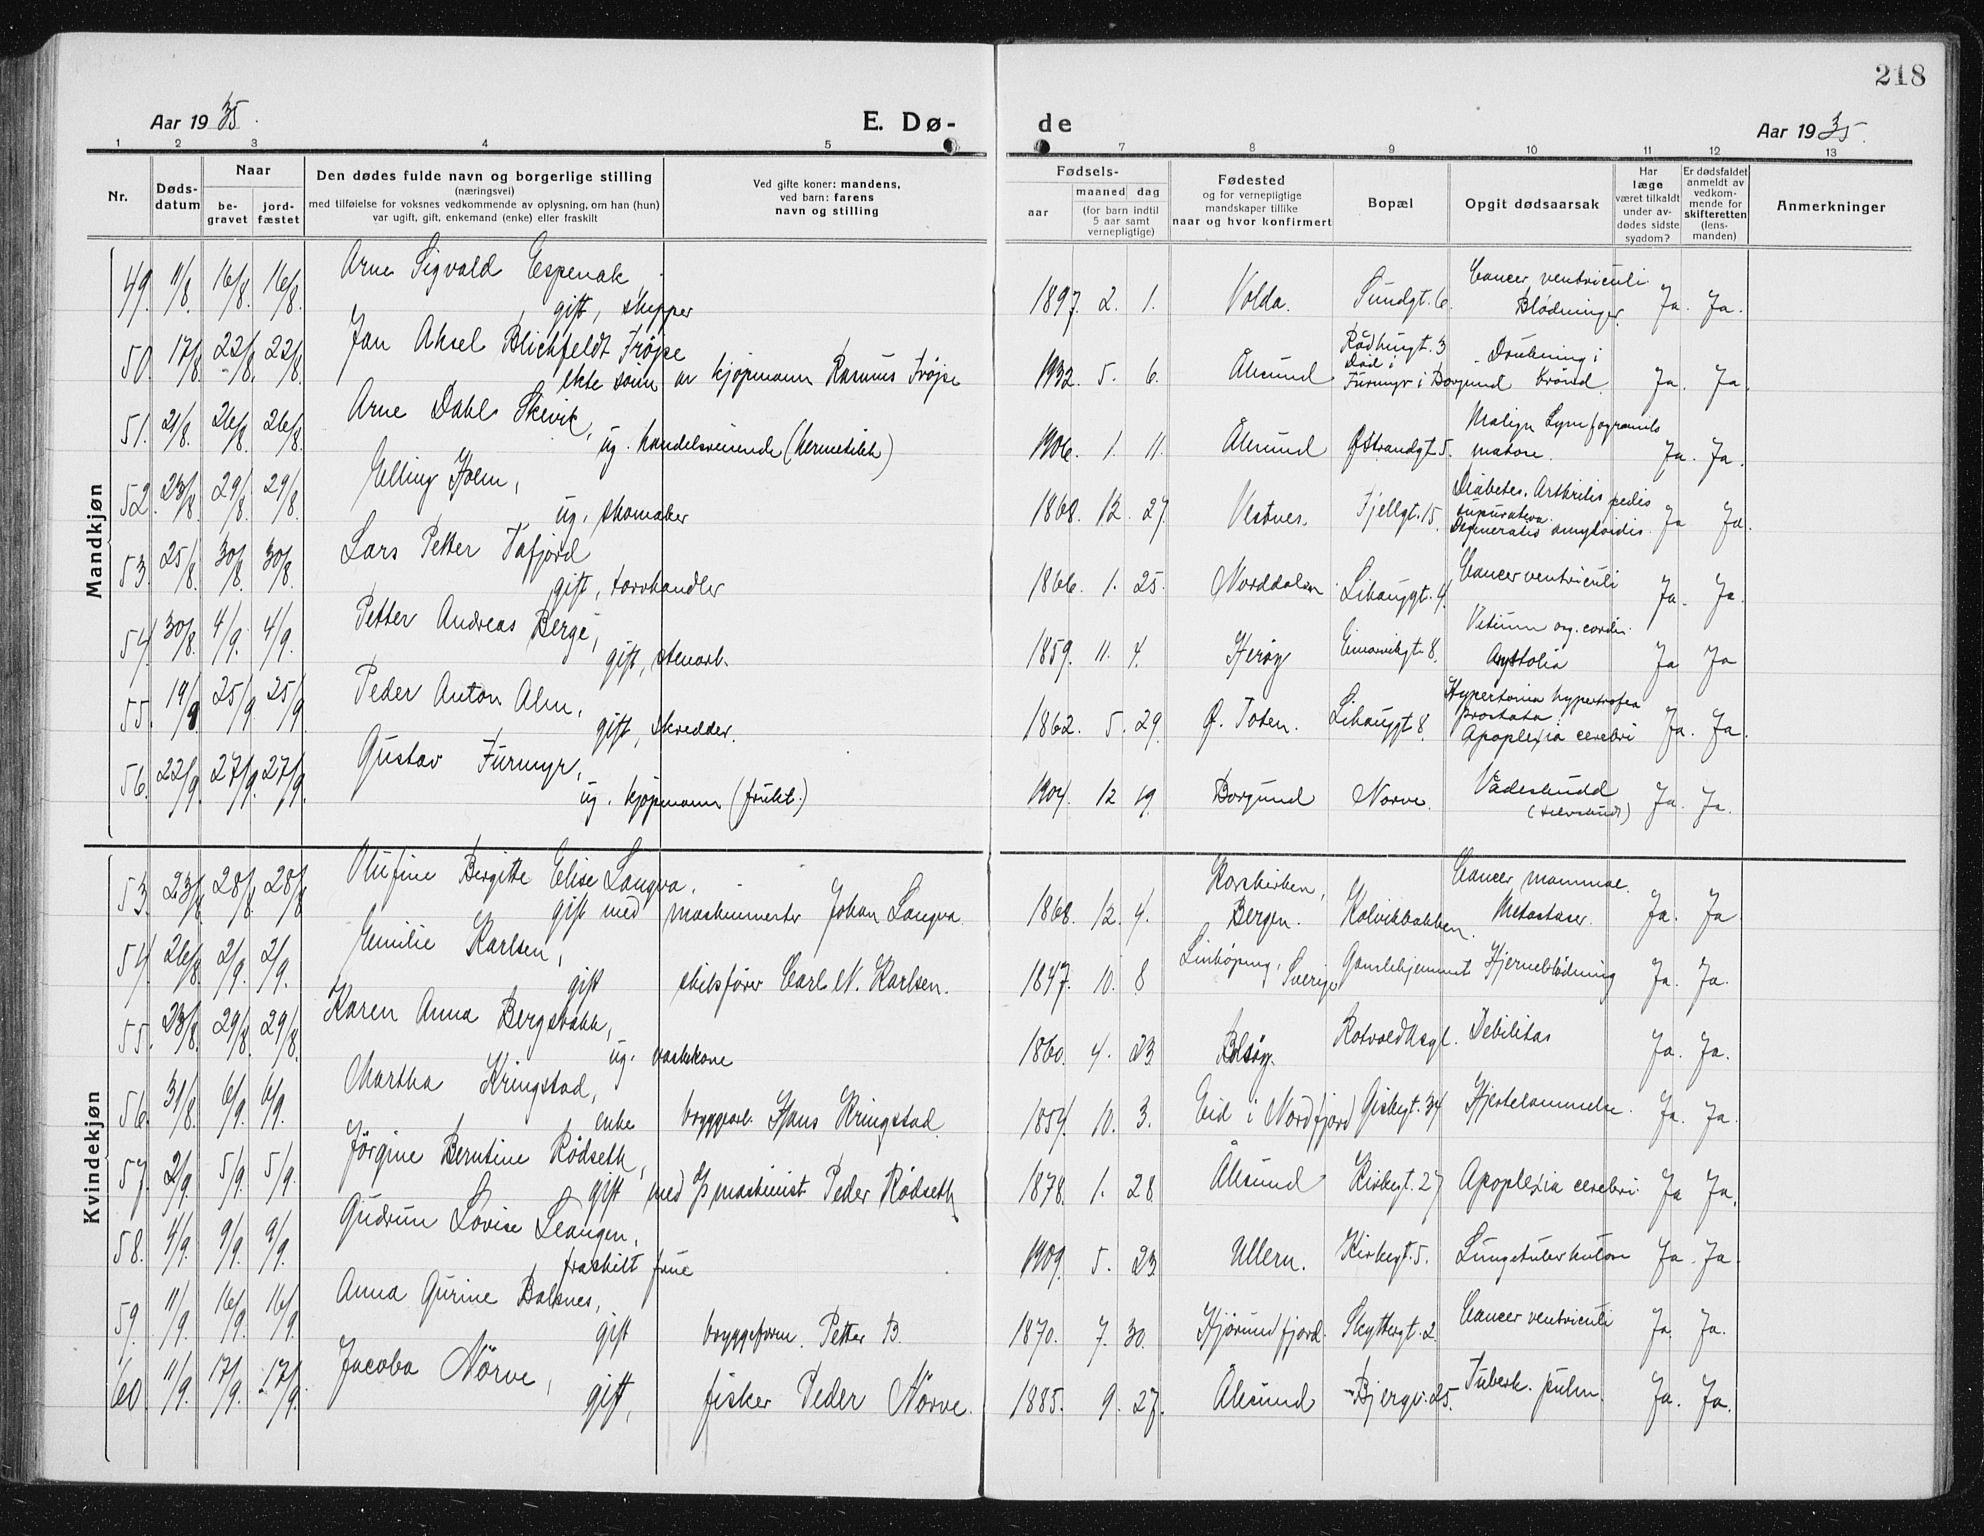 218
Aar 1935.
E. Dø-
de
Aar 1935.
1 2 3 4 5
7 8 9 10 11 12 13
Nr.
Døds-
datum
Naar
be-
gravet
jord-
fæstet
Den dødes fulde navn og borgerlige stilling
(næringsvei)
med tilføielse for voksnes vedkommende av oplysning, om han (hun)
var ugift, gift, enkemand (enke) eller fraskilt
Ved gifte koner: mandens,
ved barn: farens
navn og stilling
Fødsels-
aar
maaned dag
(for barn indtil
5 aar samt
vernepligtige)
Fødested
og for vernepligtige
mandskaper tillike
naar og hvor konfirmert
Bopæl
Opgit dødsaarsak
Har
læge
været tilkaldt
under av-
dødes sidste
sygdom?
Er dødsfaldet
anmeldt av
vedkom-
mende for
skifteretten
(lens-
manden)
Anmerkninger
Mandkjøn
49. 11/8. 16/8. 16/8. Arne Sigvald Espenak,
gift, skipper
1897. 2. 1. Volda. Sundgt. 6. Cancer ventriculi.
Blødninger. Ja. Ja.
50. 17/8. 22/8. 22/8. Jan Aksel Blichfeldt Frøjse
ekte sønn av kjøpmann Rasmus Frøjse
1932. 5. 6. Ålesund Rådhusgt. 3
Død i
Furmyr i Borgund Drukning i
brønd. Ja. Ja.
51. 21/8. 26/8. 26/8. Arne Dahl Skeivik,
ug. handelsreisende (hermetikk)
1906. 1. 11. Ålesund Ø. Strandgt 5. Malign Lymfogranulo
matose. Ja. Ja.
52. 23/8. 29/8. 29/8. Elling Holm,
ug. skomaker
1868. 12. 27. Vestnes. Fjellgt. 15. Diabetes. Arthritis pedis
supurativa.
Degeneratio amyloidis. Ja Ja.
53. 25/8. 30/8. 30/8. Lars Petter Tafjord
gift, torvhandler
1866. 1. 25. Norddalen Lihauggt. 4. Cancer ventriculi
Ja. Ja.
54. 30/8. 4/9. 4/9. Petter Andreas Berge,
gift, stenarb.
1859. 11. 4. Herøy Einarvikgt. 8. Vitium org. cordis.
Asystolia Ja Ja
55. 19/9 25/9 25/9 Peder Anton Alm,
gift, skredder.
1862. 5. 29. Ø. Toten. Lihauggt 8. Hypertonia hypertrofea
prostata.
Apoplexia cerebri Ja. Ja.
56. 22/9. 27/9. 27/9. Gustav Furmyr,
ug. kjøpmann (frukt.)
1904. 12 19. Borgund Norve. Vådeskudd
Ja. Ja.
Kvindekjøn
53. 23/8. 28/8. 28/8 Olufine Bergitte Elise Langva.
gift med maskinmester Johan Langva.
1868. 12. 4. Korskirken,
Bergen. Kolvikbakken. Cancer mammae.
Metastaser. Ja. Ja
54. 26/8 2/9. 2/9. Emilie Karlsen,
gift skibsfører Carl N. Karlsen.
1847. 10. 8 Linköping,
Sverige Gamlehjemmet Hjerneblødning Ja. Ja.
55. 23/8. 29/8. 29/8. Karen Anna Bergstakk,
ug. vaskekone
1860. 4. 23 Bolsøy. Rotvoldhagl. Debilitas
Ja. Ja.
56. 31/8 6/9. 6/9. Martha Kringstad,
enke bryggearb. Hans Kringstad.
1854. 10. 3. Eid i Nordfjord Giskegt. 34 Hjertelammelse. Ja. Ja.
57. 2/9. 5/9. 5/9. Jørgine Berntine Rødseth,
gift med maskinist Peder Rødseth
1878. 1. 28 Ålesund Kirkegt. 27 Apoplexia cerebri. Ja Ja.
58. 4/9. 9/9. 9/9. Gudrun Lovise Leangen,
fraskilt frue
1909. 5. 23 Ullern. Kirkegt. 5. Lungetuberkulose Ja. Ja.
59. 11/9. 16/9. 16/9. Anna Gurine Balsnes,
gift bryggeform. Petter B.
1870. 7. 30. Hjørundfjord. Skyttergt. 2 Cancer ventriculi
Ja. Ja.
60. 11/9. 17/9. 17/9. Jacoba Nörve,
gift, fisker Peder Nörve.
1885. 9. 27. Ålesund Bjergv. 25. Tuberk. pulm. Ja. Ja.